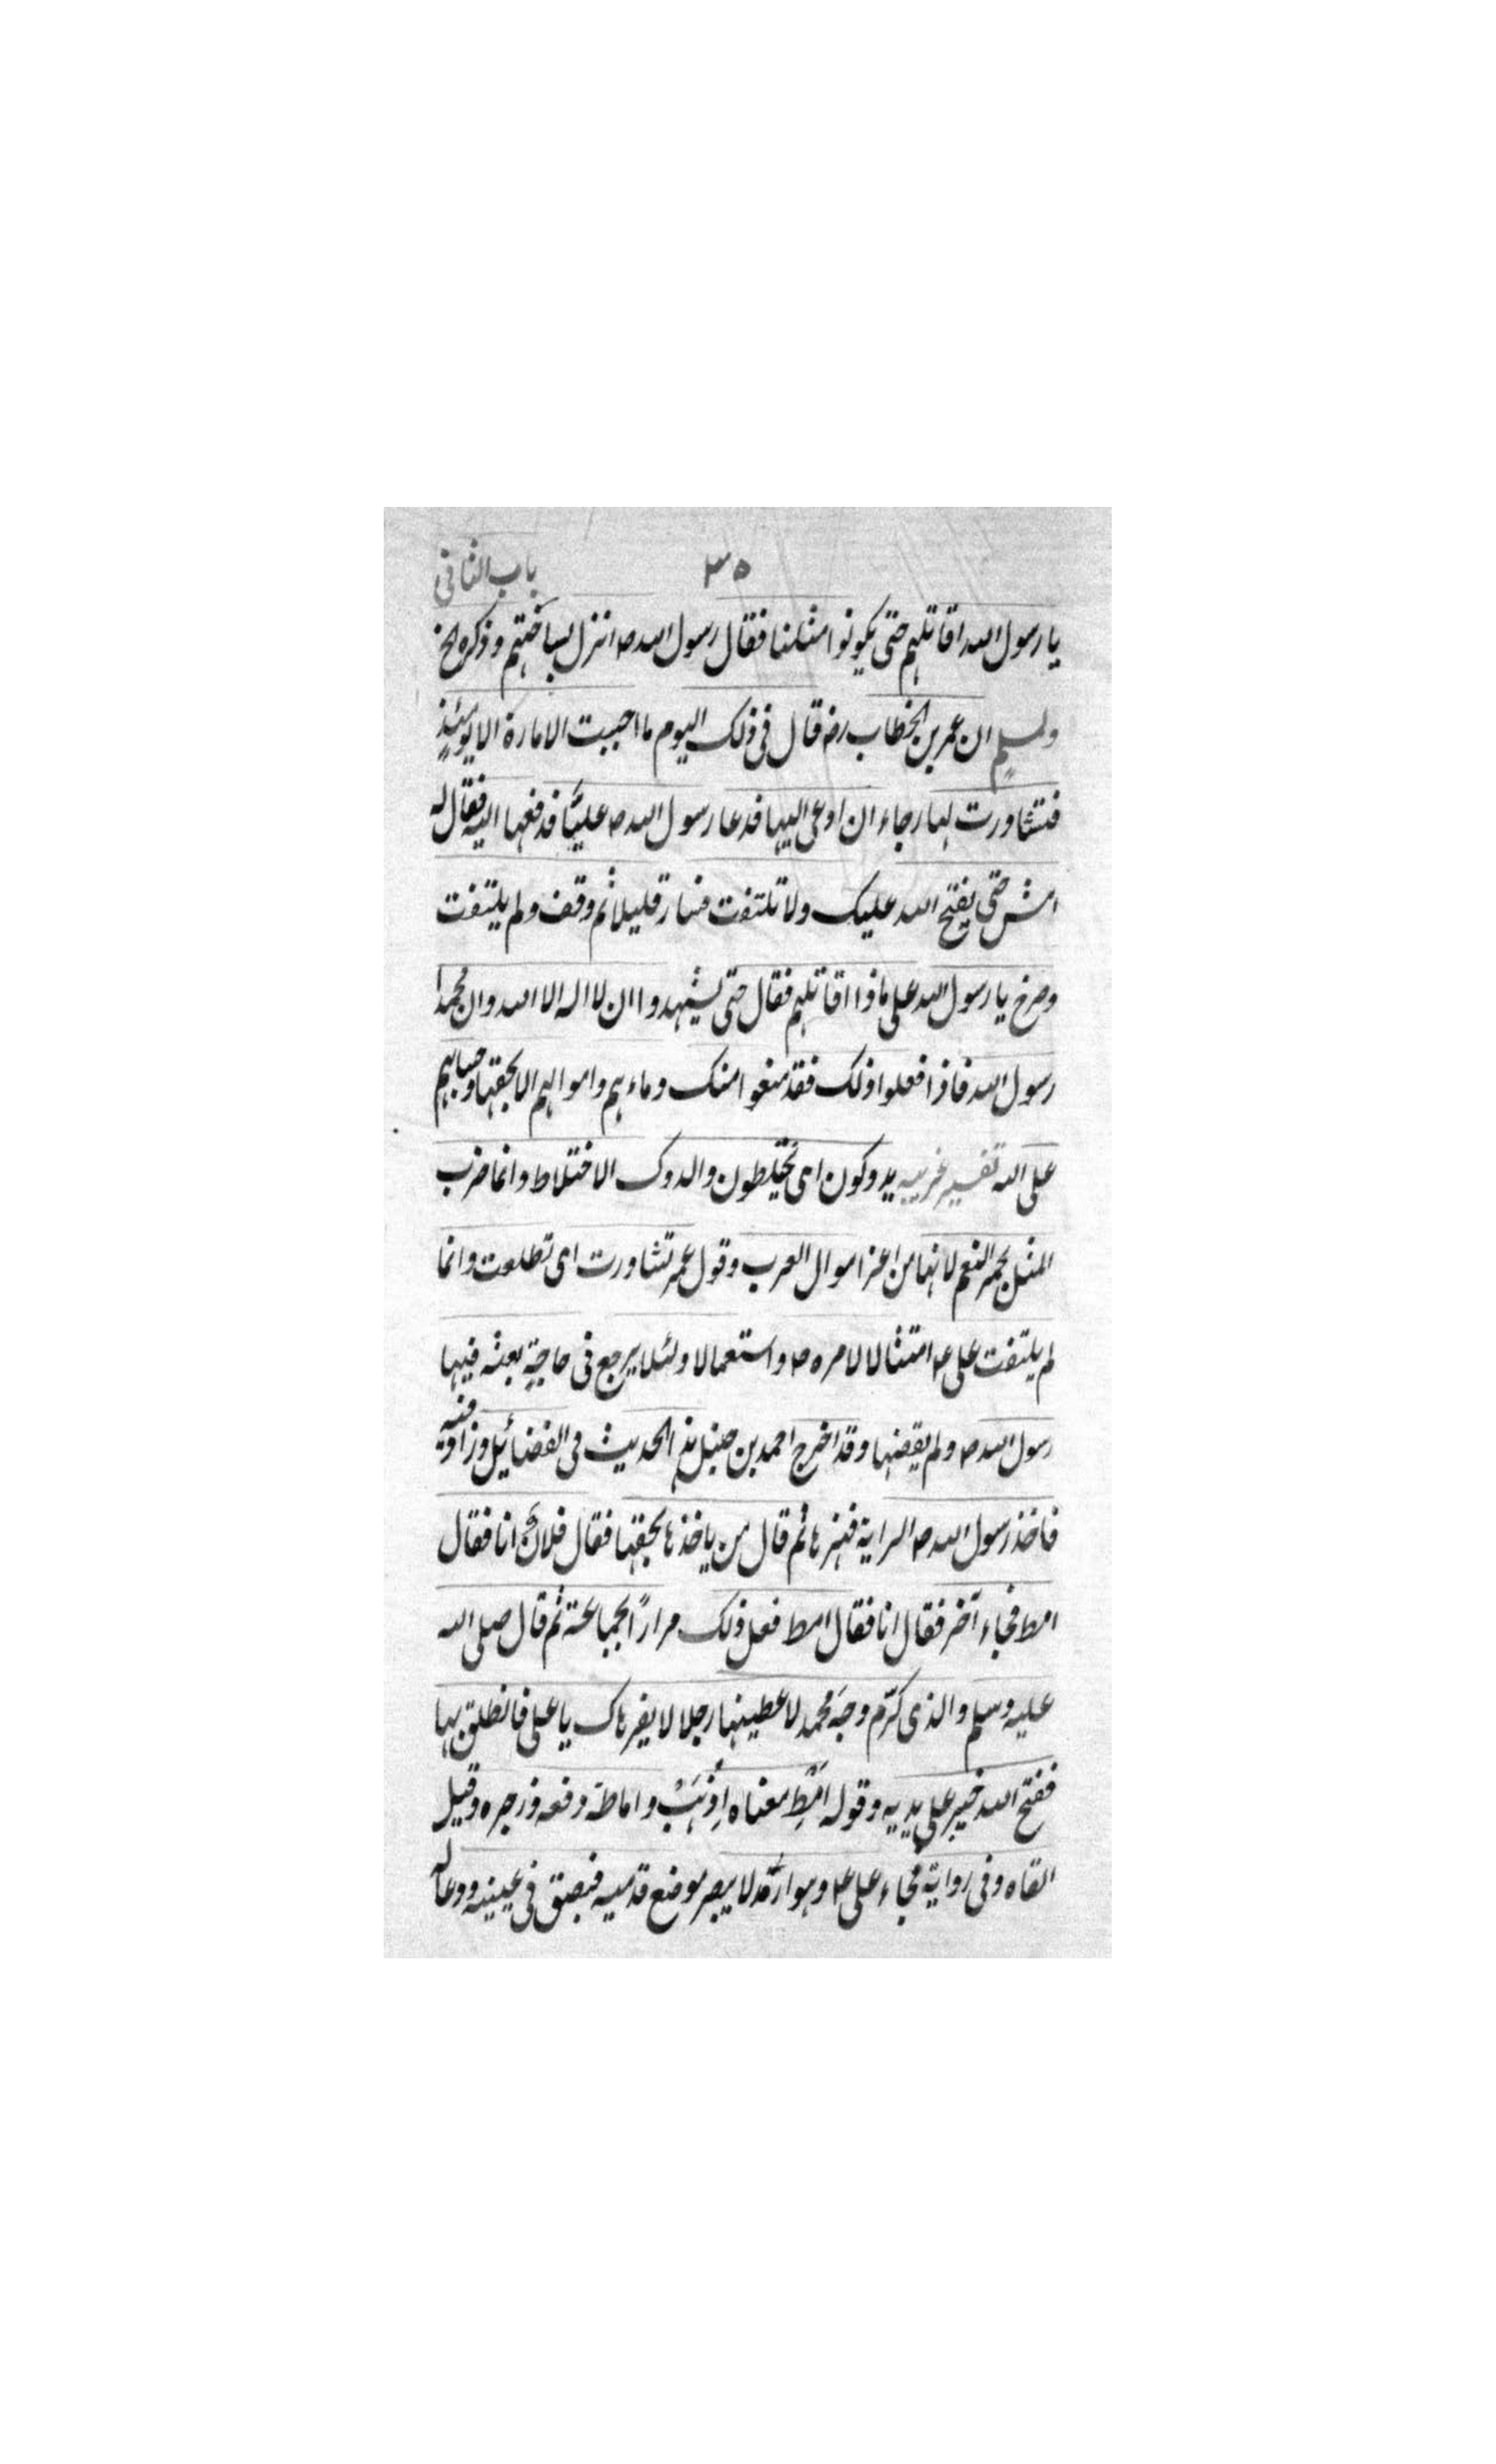 باب الثانی ۳۵
یا رسول الله اقاتلهم حتی یکونوا مثلنا فقال رسول الله ص انزل بساحتهم وذکره الخ
ولمسلم ان عمر بن الخطاب رضه قال فی ذلک الیوم ما احببت الامارة الا یومئذٍ
فتشاورت لها رجاء ان ادعی الیها فدعا رسول الله ص علیًّا فدفعها الیه فقال له
امش حتی یفتح الله علیک ولا تلتفت فسار قلیلا ثم وقف ولم یلتفت
وصرخ یا رسول الله علی ماذا اقاتلهم فقال حتی یشهدوا ان لا اله الا الله وان محمدا
رسول الله فاذا فعلوا ذلک فقد منعوا منک دماءهم واموالهم الا بحقها وحسابهم
علی الله تفسیر غریبه یدوکون ای یختلطون والدوک الاختلاط وانما ضرب
المثل بحمر النعم لانها من اعز اموال العرب وقول عمر تشاورت ای تطلعت وانما
لم یلتفت علی ع امتثالا لامره ص واستعمالا ولئلا یرجع فی حاجةٍ بعثه فیها
رسول الله ص ولم یقضها وقد اخرج احمد بن حنبل هذا الحدیث فی الفضائل وزاد فیه
فاخذ رسول الله ص الرایة فهزها ثم قال من یاخذها بحقها فقال فلانٌ انا فقال
امط فجاء آخر فقال انا فقال امط فعل ذلک مرارًا لجماعة ثم قال صلی الله
علیه وسلم والذی کرّم وجهَ محمد لاعطینها رجلا لا یفر هاک یا علی فانطلق بها
ففتح الله خیبر علی یدیه وقوله اَمِطْ معناه اِذْهَبْ واماطة دفعه وزجره وقیل
القاه وفی روایة فجاء علی ع وهو ارمد لا یبصر موضع قدمیه فبصق فی عینیه ودعا له